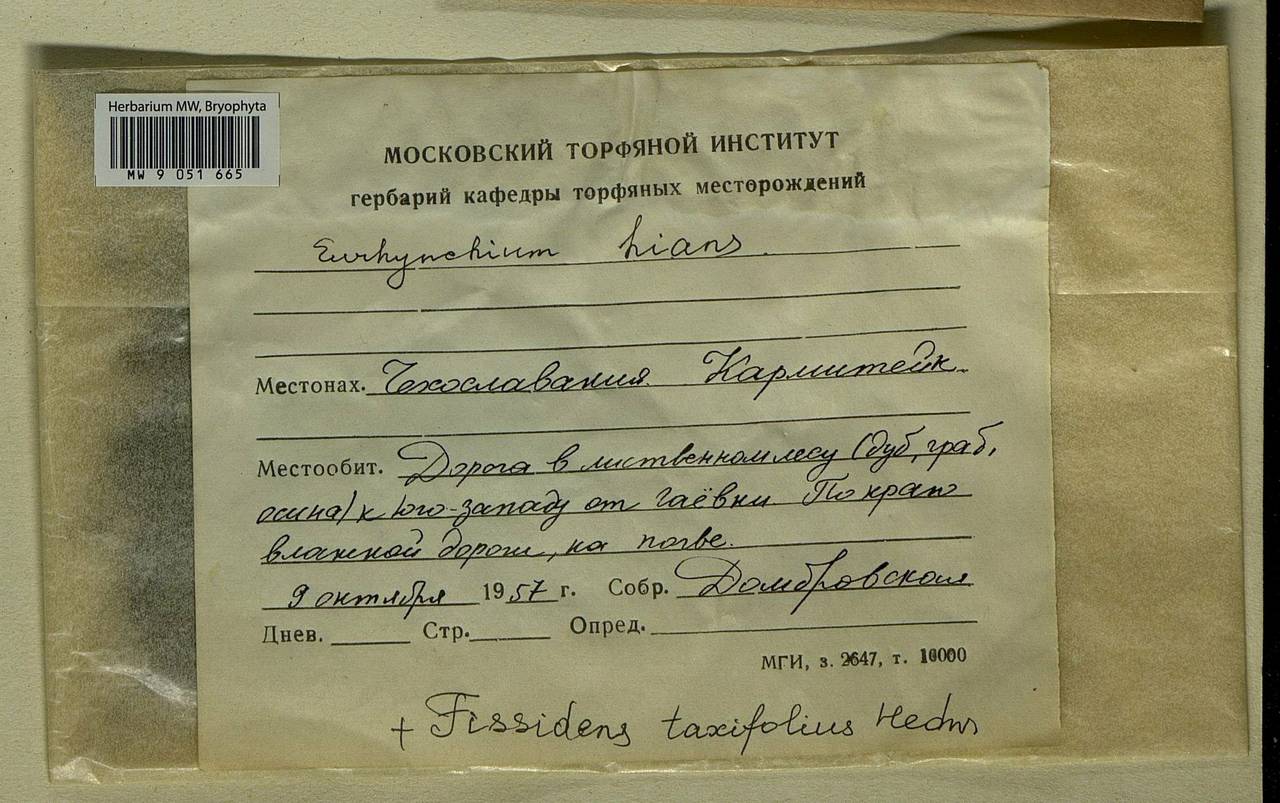 Herbarium MW, Bryophyta
MW 9 051 665
МОСКОВСКИЙ ТОРФЯНОЙ ИНСТИТУТ
гербарий кафедры торфяных месторождений
Eurhynchium hians.
Местонах. Чехославакия. Кармштейн.
Местообит. Дорога в лиственном лесу (дуб, граб,
осина) к юго-западу от гаёвни. По краю
влажной дороги, на почве.
9 октября 1957 г. Собр. Домбровская
Днев. Стр. Опред.
МГИ, з. 2647, т. 10000
+ Fissidens taxifolius Hedw